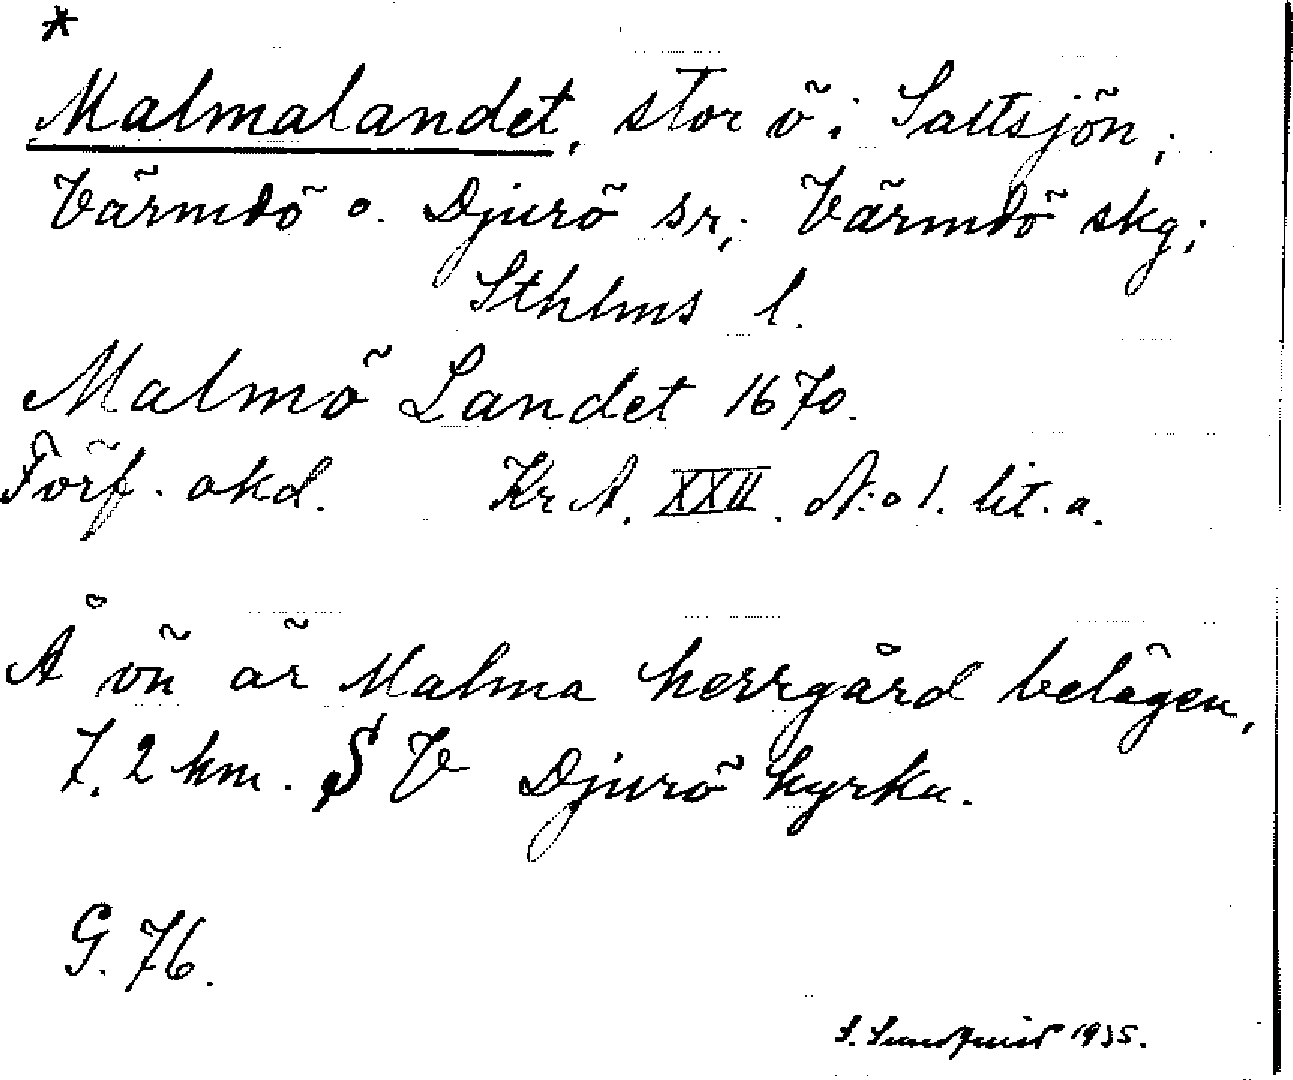 *
Malmalandet, stor ö i Saltsjön;
Värmdö o. Djurö sr; Värmdö skg;
Sthlms l.
Malmö Landet 1670.
Förf. okd. Kr A. XXII. N:o 1. lit. a.
Å ön är Malma herrgård belägen,
7,2 km. SV Djurö kyrka.
G. 76.
S. Sundquist 1935.